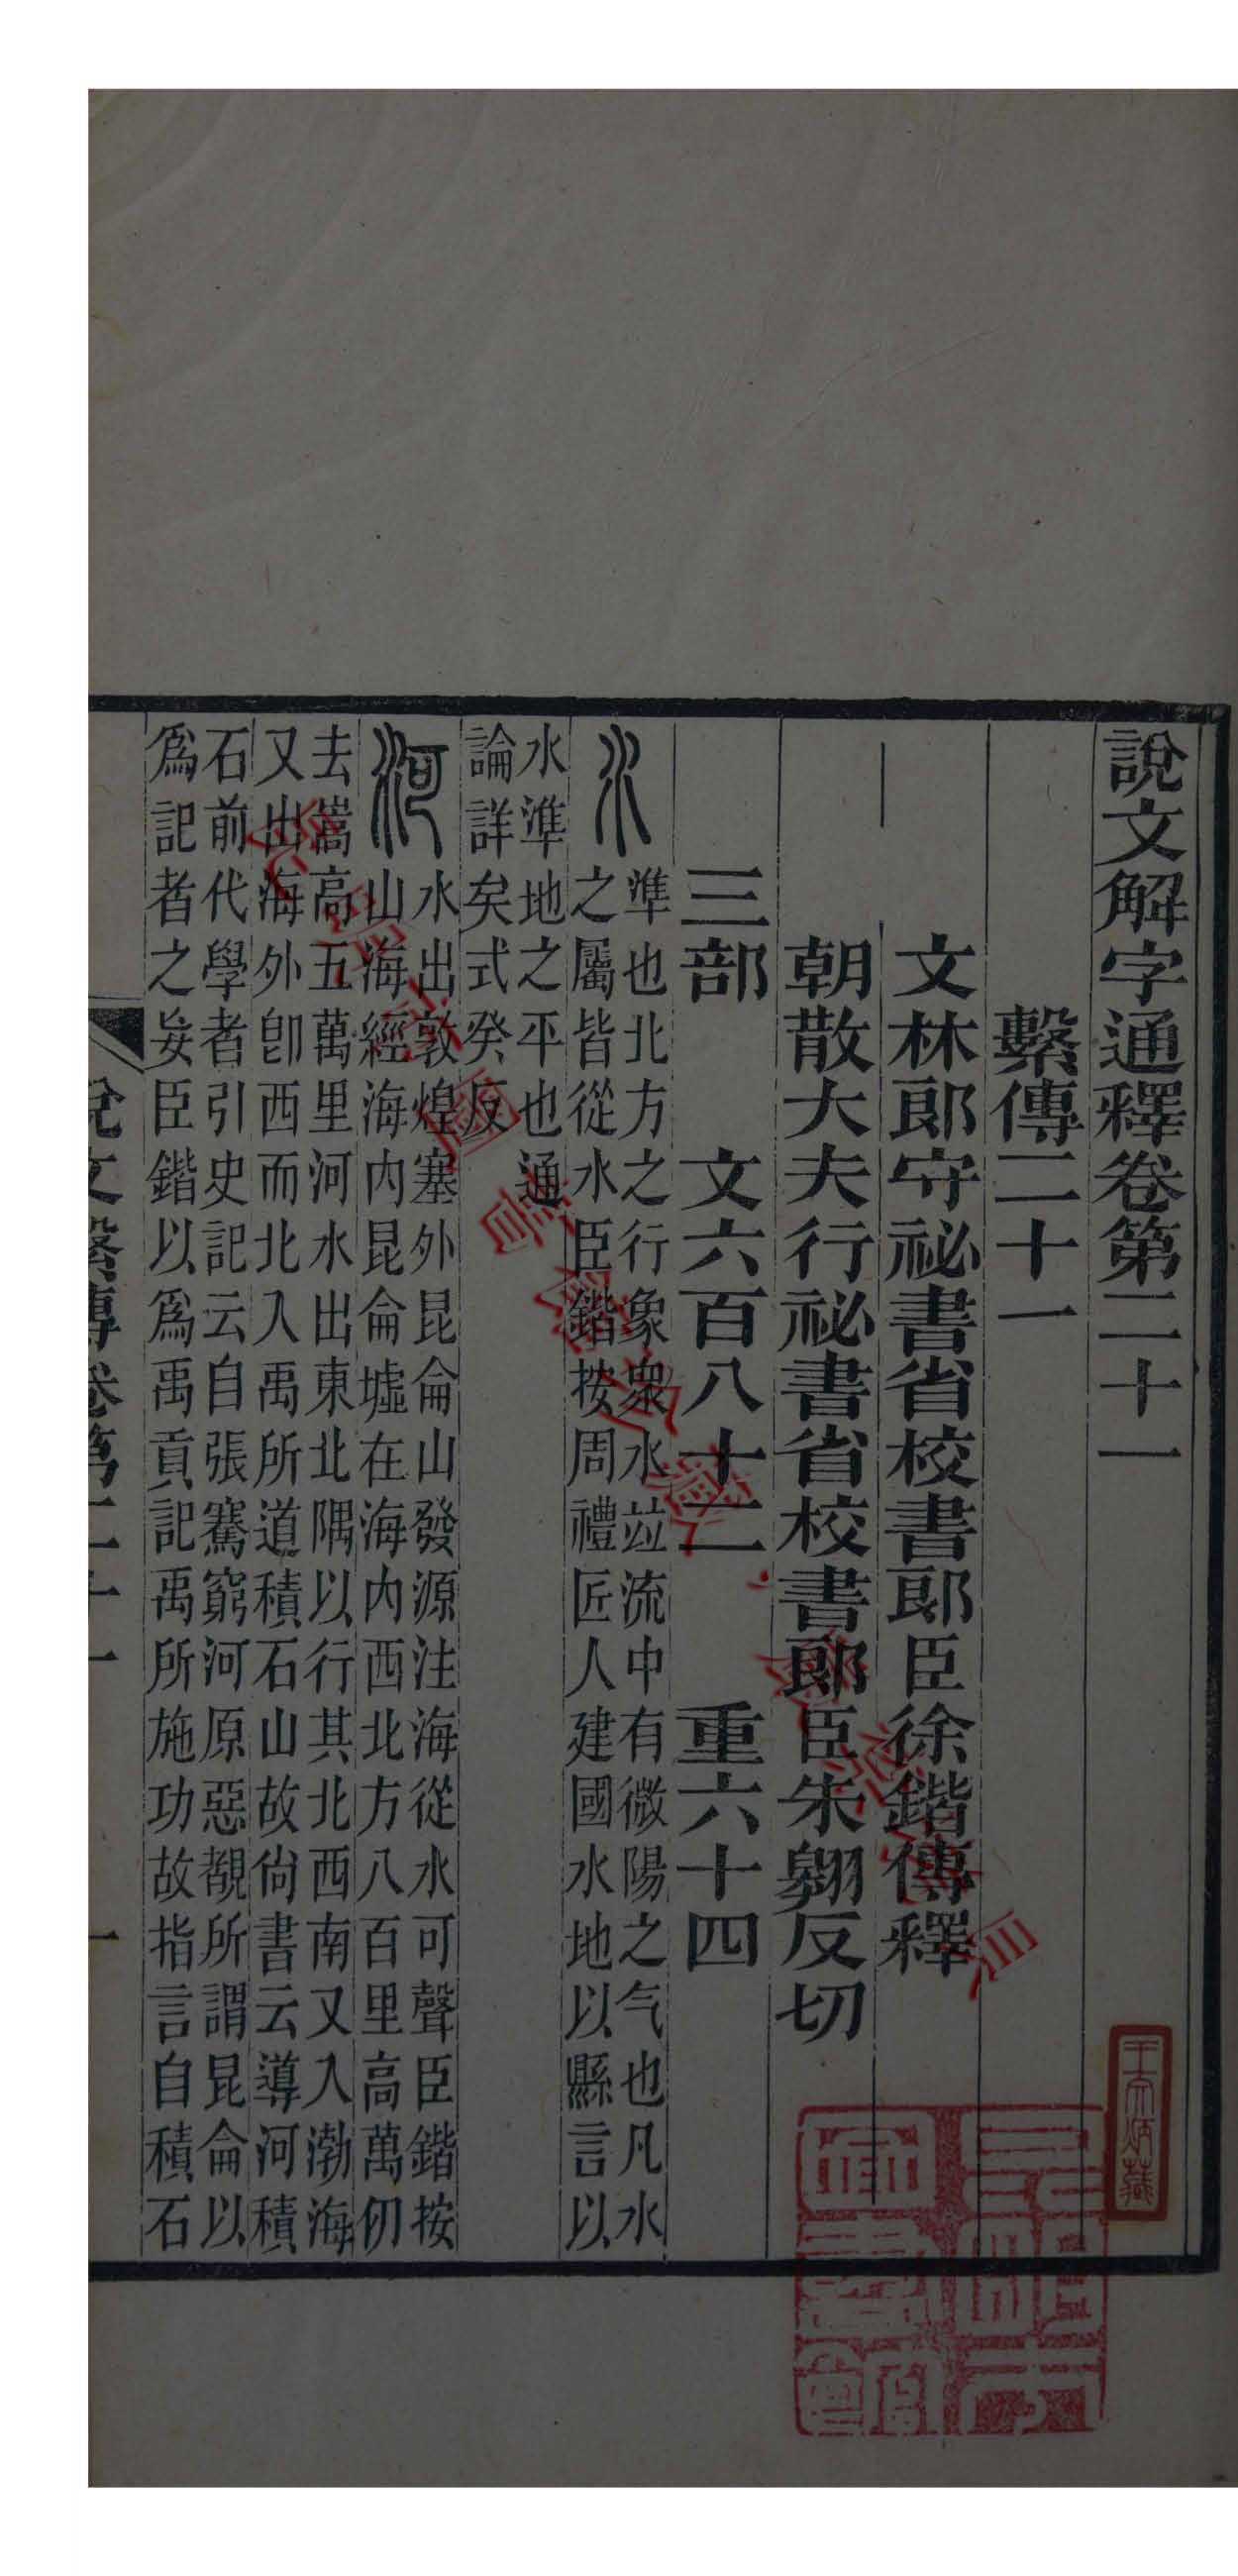 說文解字通釋卷第二十一
繫傳二十一
文林郎守祕書省校書郎臣徐鍇傳釋
朝散大夫行祕書省校書郎臣朱翱反切
三部 文六百八十二 重六十四
水
準也北方之行象衆水竝流中有微陽之气也凡水
之屬皆從水臣鍇按周禮匠人建國水地以縣言以
水準地之平也通
論詳矣式癸反
河
水出敦煌塞外昆侖山發源注海從水可聲臣鍇按
山海經海內昆侖墟在海內西北方八百里高萬仞
去嵩高五萬里河水出東北隅以行其北西南又入渤海
又出海外卽西而北入禹所道積石山故尙書云導河積
石前代學者引史記云自張騫窮河原惡覩所謂昆侖以
爲記者之妄臣鍇以爲禹貢記禹所施功故指言自積石
說文繫傳卷第二十一
一
王永炳藏
昆明市圖書館